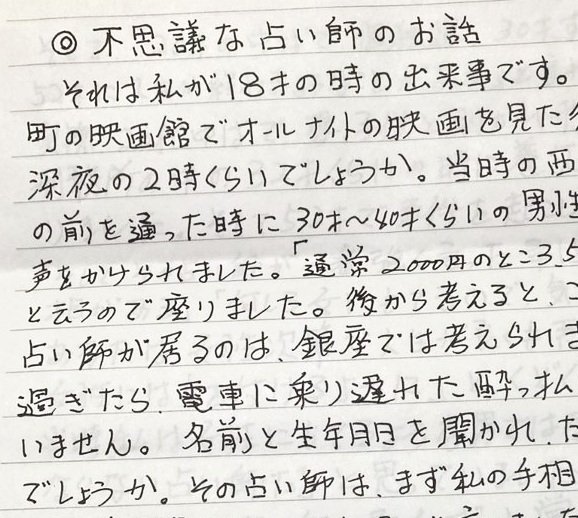 ◎不思議な占い師のお話
それは私が18才の時の出来事です。
町の映画館でオールナイトの映画を見た
深夜の2時くらいでしょうか。当時の西
の前を通った時に30才〜40才くらいの男性
声をかけられました。「通常2000円のところ5
と云うので座りました。後から考えると、こ
占い師が居るのは、銀座では考えられま
過ぎたら、電車に乗り遅れた酔っ払
いません。名前と生年月日を聞かれ、た
でしょうか。その占い師は、まず私の手相